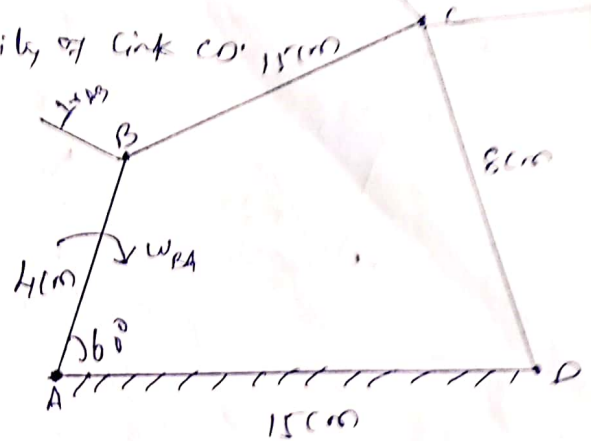 ily of link CD.
15cm
C
B
8cm
ω_BA
4cm
60°
A
D
15cm